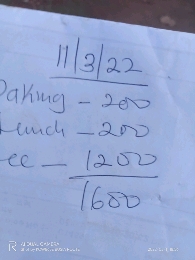 11/3/22
Daking - 200
Hunch - 200
ee - 1200
1600
AI QUAD CAMERA